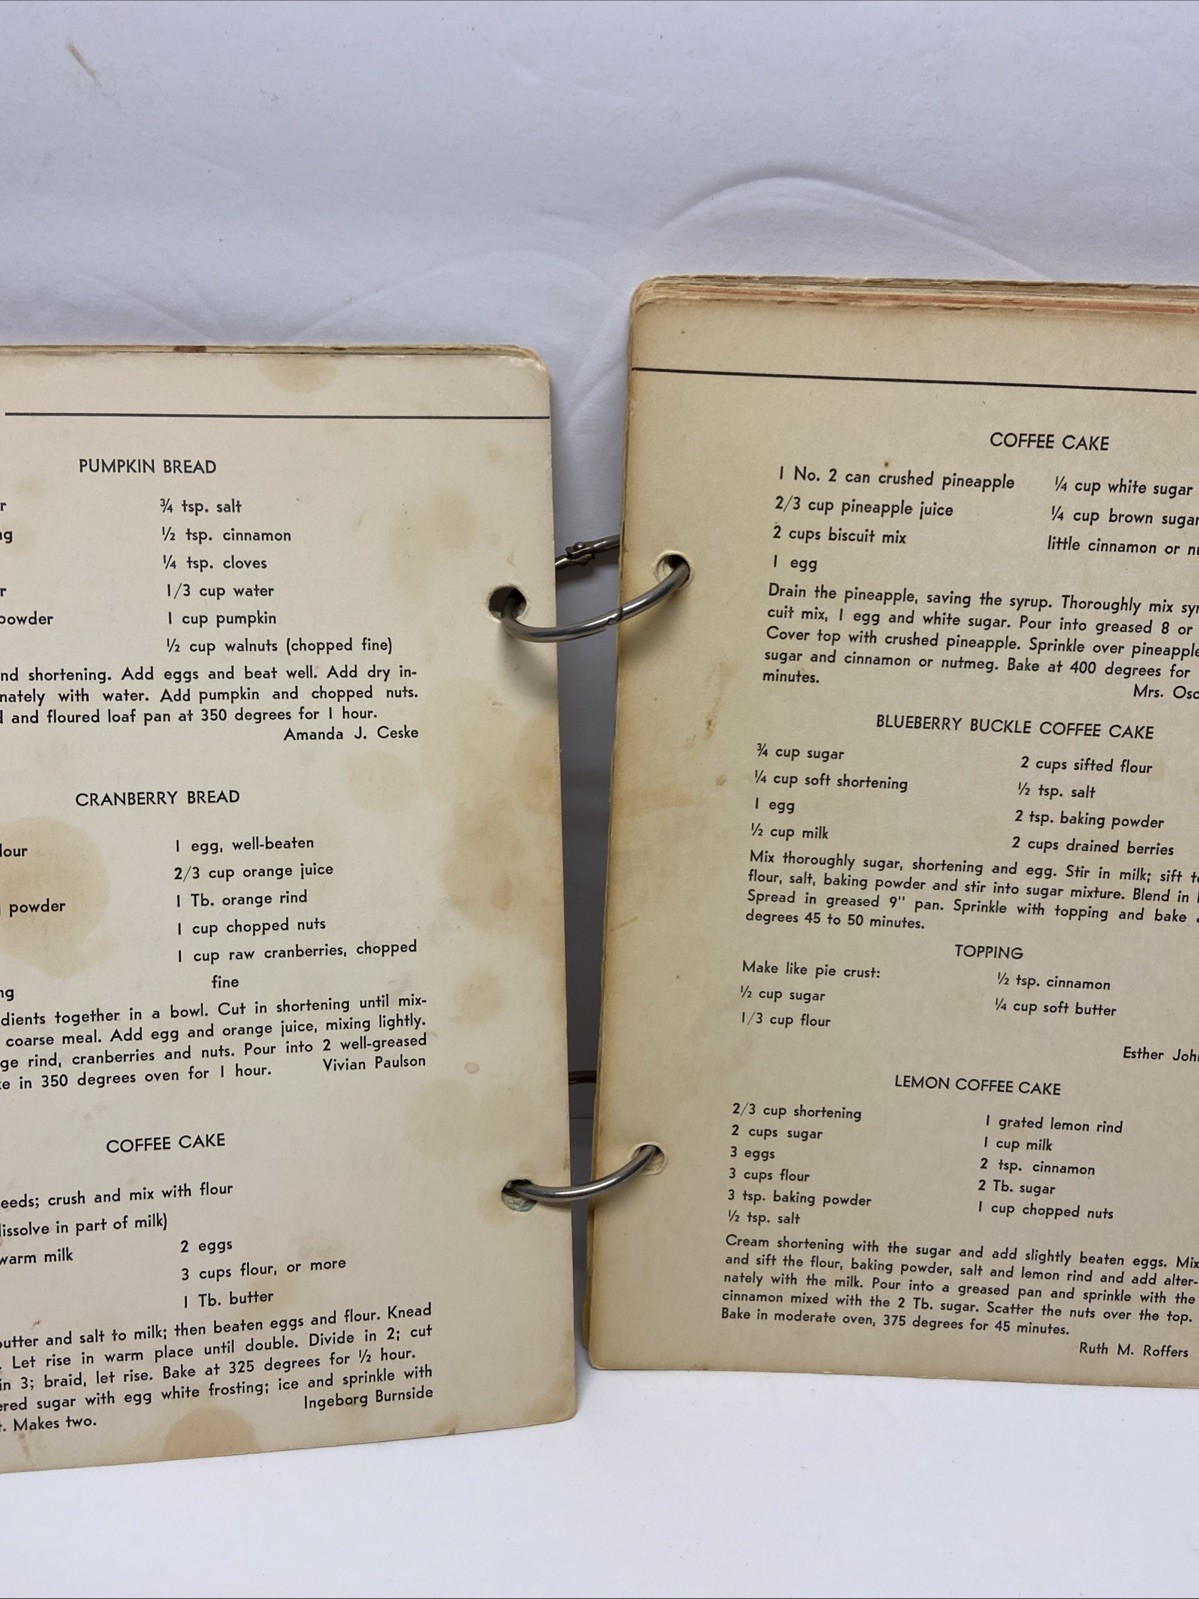 PUMPKIN BREAD
¾ tsp. salt
½ tsp. cinnamon
¼ tsp. cloves
1/3 cup water
powder 1 cup pumpkin
½ cup walnuts (chopped fine)
shortening. Add eggs and beat well. Add dry in-
with water. Add pumpkin and chopped nuts.
and floured loaf pan at 350 degrees for 1 hour.
Amanda J. Ceske
CRANBERRY BREAD
1 egg, well-beaten
2/3 cup orange juice
1 Tb. orange rind
powder 1 cup chopped nuts
1 cup raw cranberries, chopped
fine
together in a bowl. Cut in shortening until mix-
coarse meal. Add egg and orange juice, mixing lightly.
rind, cranberries and nuts. Pour into 2 well-greased
in 350 degrees oven for 1 hour. Vivian Paulson
COFFEE CAKE
crush and mix with flour
in part of milk)
warm milk 2 eggs
3 cups flour, or more
1 Tb. butter
and salt to milk; then beaten eggs and flour. Knead
Let rise in warm place until double. Divide in 2; cut
in 3; braid, let rise. Bake at 325 degrees for ½ hour.
sugar with egg white frosting; ice and sprinkle with
Makes two. Ingeborg Burnside
COFFEE CAKE
1 No. 2 can crushed pineapple ¼ cup white sugar
2/3 cup pineapple juice ¼ cup brown sugar
2 cups biscuit mix little cinnamon or
1 egg
Drain the pineapple, saving the syrup. Thoroughly mix
cuit mix, 1 egg and white sugar. Pour into greased 8 or
Cover top with crushed pineapple. Sprinkle over pineapple
sugar and cinnamon or nutmeg. Bake at 400 degrees for
minutes.
Mrs.
BLUEBERRY BUCKLE COFFEE CAKE
¾ cup sugar 2 cups sifted flour
¼ cup soft shortening ½ tsp. salt
1 egg 2 tsp. baking powder
½ cup milk 2 cups drained berries
Mix thoroughly sugar, shortening and egg. Stir in milk; sift
flour, salt, baking powder and stir into sugar mixture. Blend in
Spread in greased 9" pan. Sprinkle with topping and bake
degrees 45 to 50 minutes.
TOPPING
Make like pie crust: ½ tsp. cinnamon
½ cup sugar ¼ cup soft butter
1/3 cup flour
Esther
LEMON COFFEE CAKE
2/3 cup shortening 1 grated lemon rind
2 cups sugar 1 cup milk
3 eggs 2 tsp. cinnamon
3 cups flour 2 Tb. sugar
3 tsp. baking powder 1 cup chopped nuts
½ tsp. salt
Cream shortening with the sugar and add slightly beaten eggs. Mix
and sift the flour, baking powder, salt and lemon rind and add alter-
nately with the milk. Pour into a greased pan and sprinkle with the
cinnamon mixed with the 2 Tb. sugar. Scatter the nuts over the top.
Bake in moderate oven, 375 degrees for 45 minutes.
Ruth M. Roffers